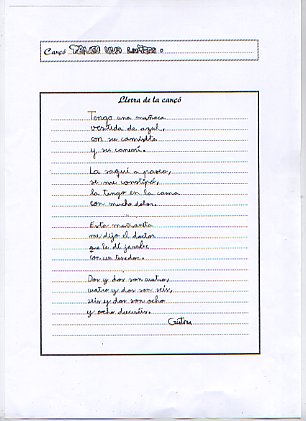 Cançó TENGO UNA MUÑECA.
Lletra de la cançó
Tengo una muñeca
vestida de azul,
con su camisita
y su canesú.
La saqué a paseo,
se me constipó,
la tengo en la cama
con mucho dolor.
Esta mañanita
me dijo el doctor
que le dé jarabe
con un tenedor.
Dos y dos son cuatro,
cuatro y dos son seis,
seis y dos son ocho
y ocho dieciséis.